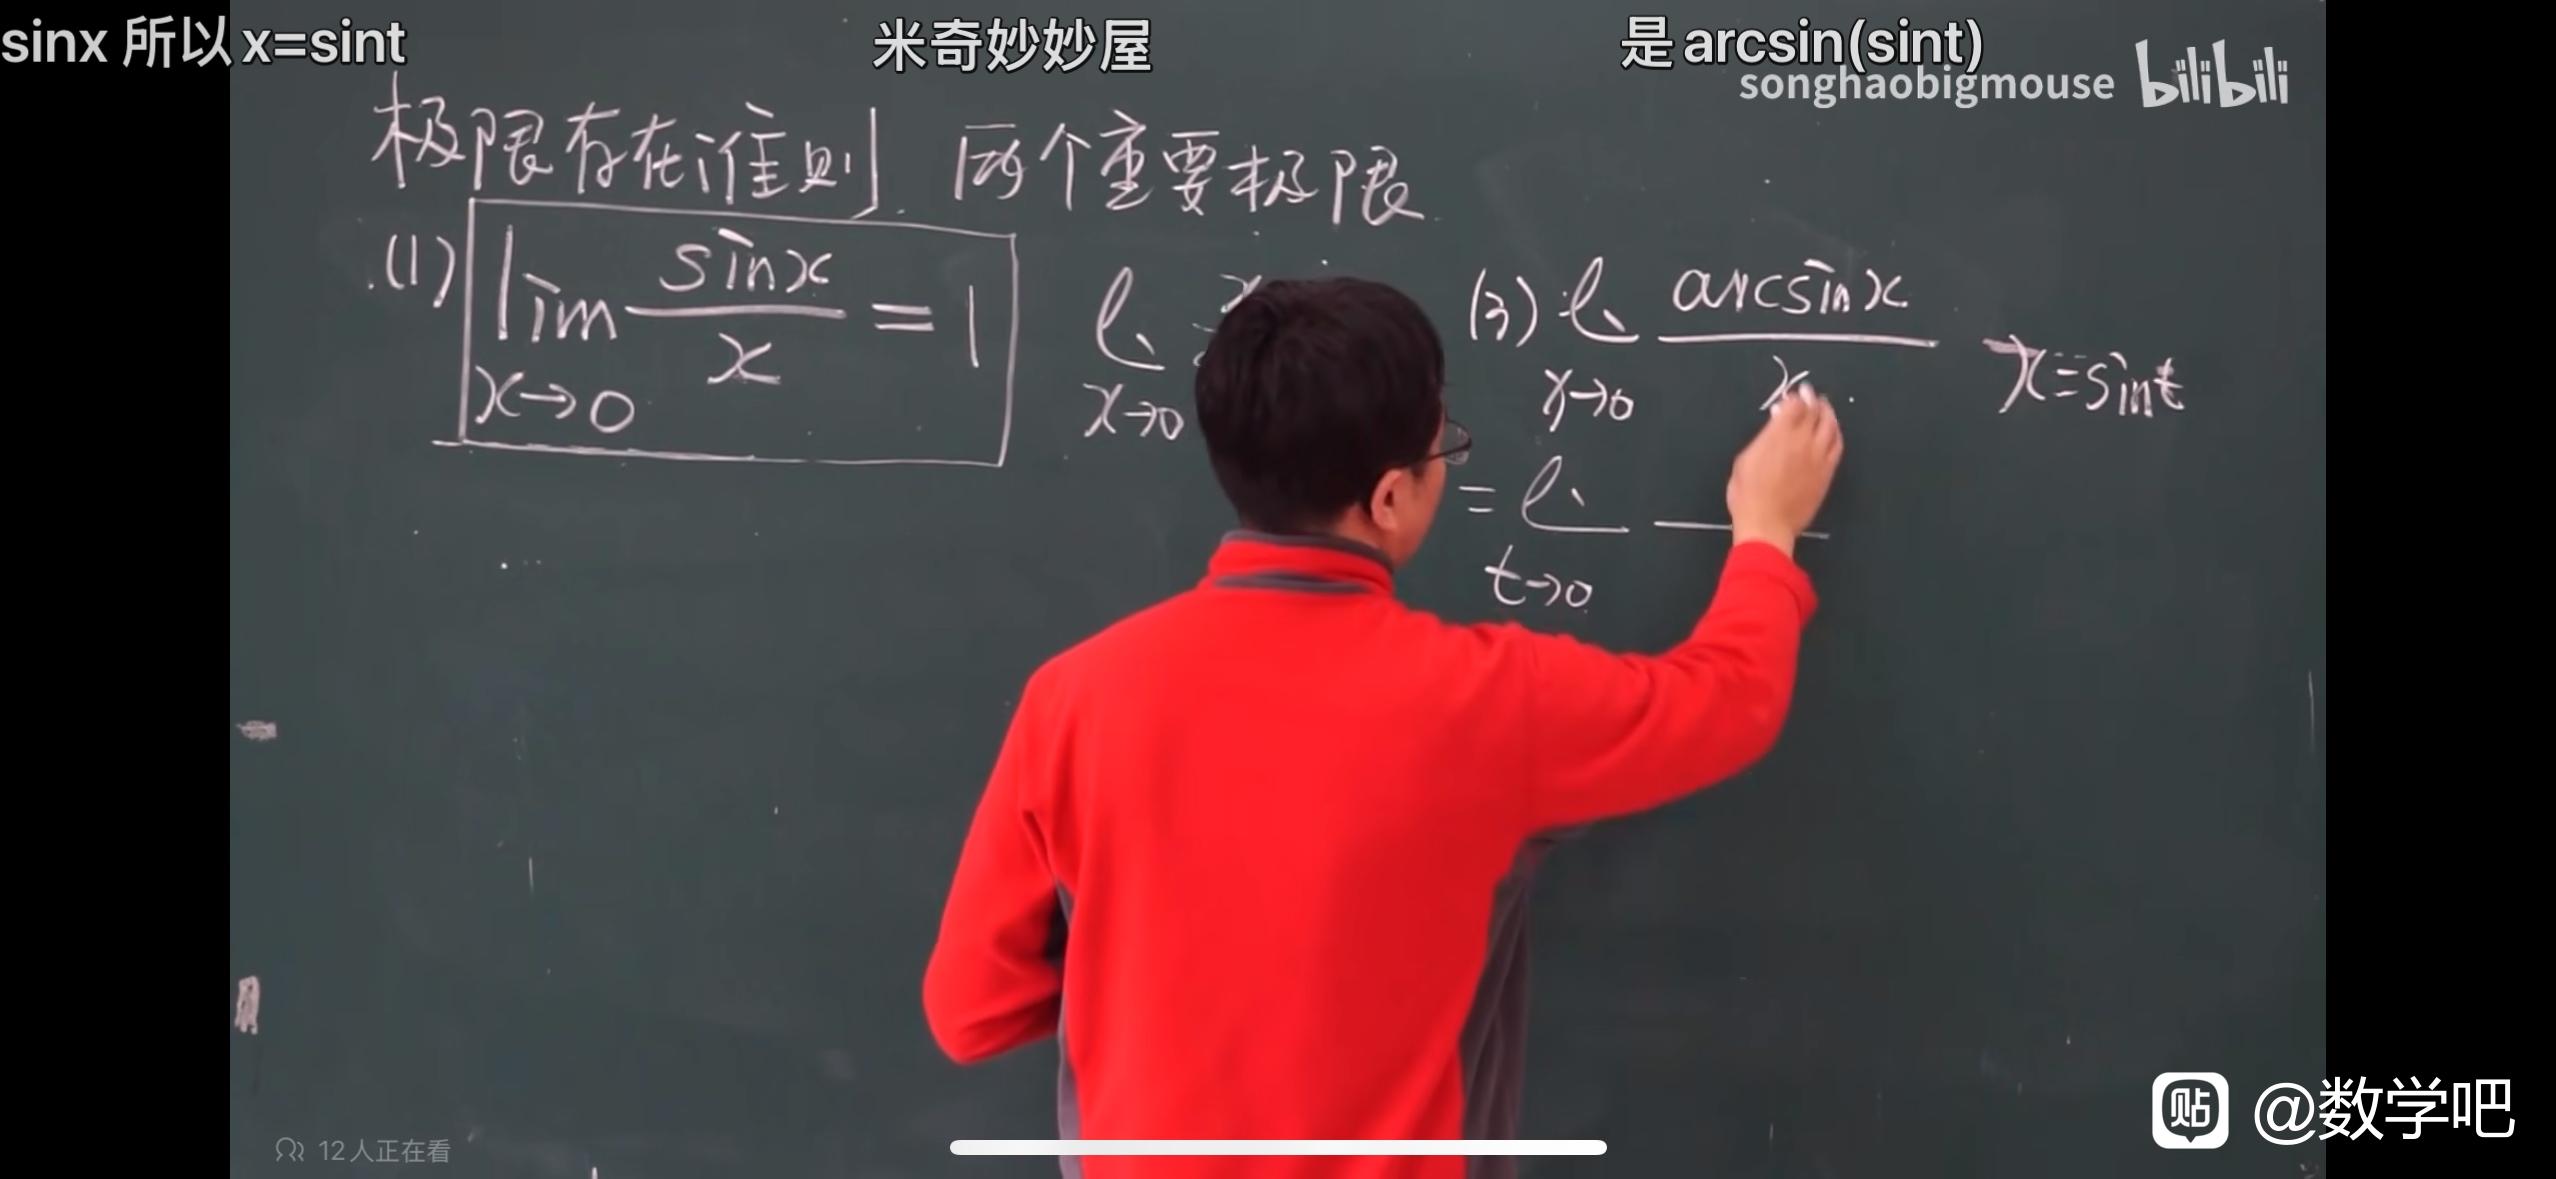 sinx 所以 x=sint
米奇妙妙屋
是arcsin(sint)
songhaobigmouse bilibili
极限存在准则 两个重要极限
(1) lim sinx/x = 1
x→0
x→0
(3) l arcsinx/x
x→0
x=sint
= l
t→0
12人正在看
贴 @数学吧